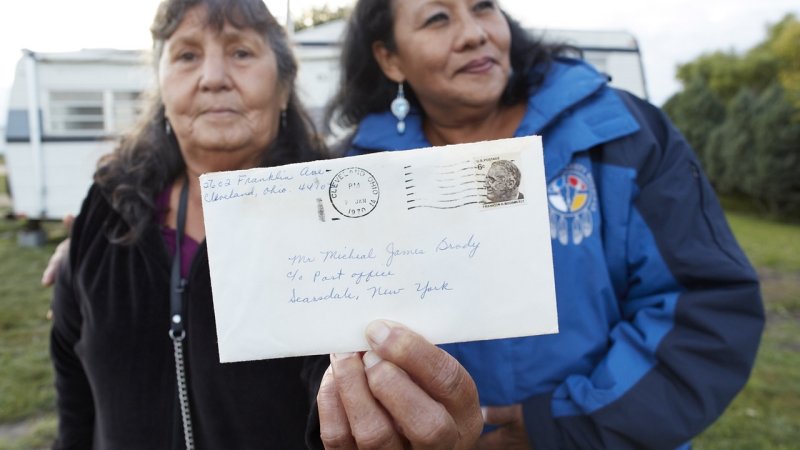 5602 Franklin Ave
Cleveland, Ohio. 4410
CLEVELAND, OHIO
PM
JAN
1970
U.S. POSTAGE
6¢
Mr Micheal James Brody
c/o Post office
Scarsdale, New York